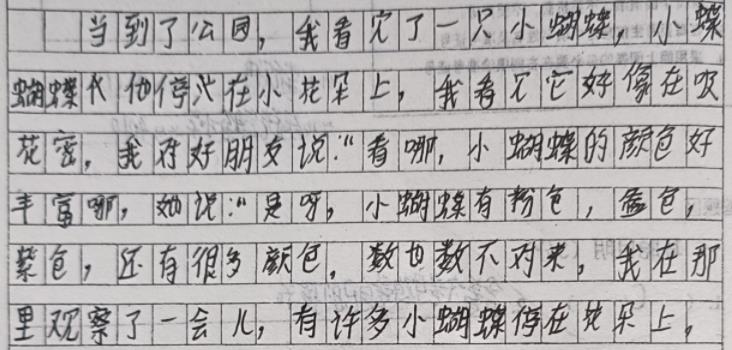 当到了公园，我看见了一只小蝴蝶，小蝶
蝴蝶代他停在小花朵上，我看见它好像在吸
花密，我对好朋友说：“看哪，小蝴蝶的颜色好
丰富哪，她说：“是呀，小蝴蝶有粉色，蓝色，
紫色，还有很多颜色，数也数不对来，我在那
里观察了一会儿，有许多小蝴蝶停在花朵上。